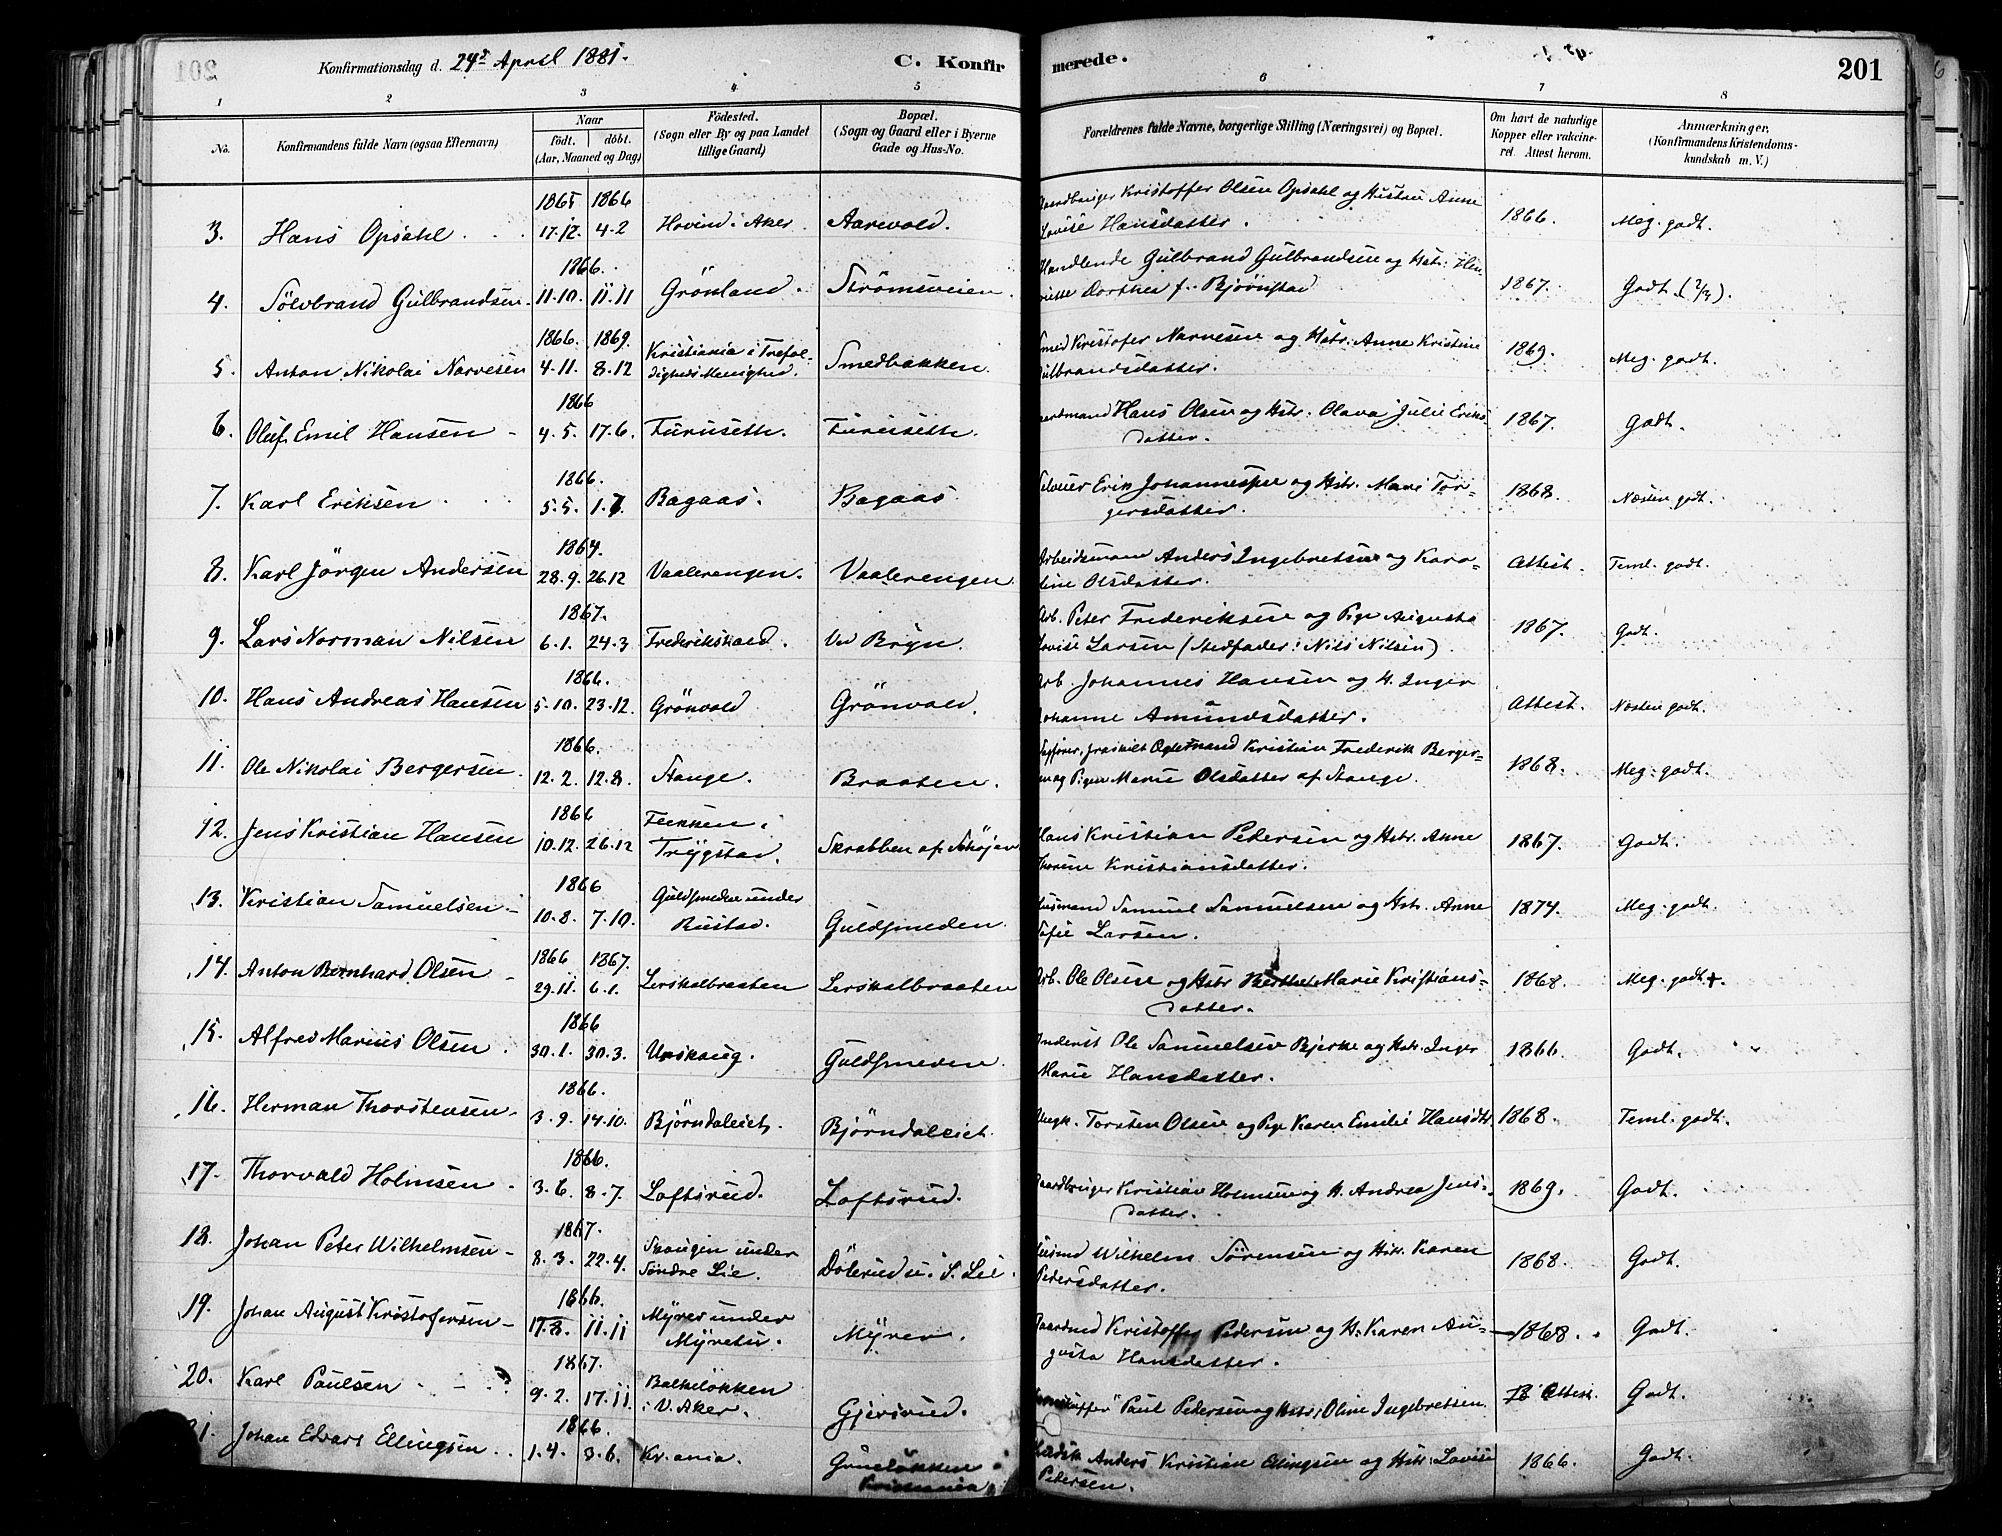 201
Konfirmationsdag d. 24de April 1881.
C. Konfirmerede.
201
1 2 3 4 5 6 7 8
No.
Konfirmandens fulde Navn (ogsaa Efternavn)
Naar
födt. döbt.
(Aar, Maaned og Dag)
Födested.
(Sogn eller By og paa Landet
tillige Gaard)
Bopæl.
(Sogn og Gaard eller i Byerne
Gade og Hus-No.
Forældrenes fulde Navne, borgerlige Stilling (Næringsvei) og Bopæl.
Om havt de naturlige
Kopper eller vakcine-
ret. Attest herom.
Anmærkninger.
(Konfirmandens Kristendoms-
kundskab m. V.)
1865 1866
3. Hans Opsahl. 17.12. 4.2 Hovind i Aker. Aarvold. Gaardbruger Kristoffer Olsen Opsahl og Hustru Anne
Lovise Hansdatter. 1866. Meg. godt.
1866.
4. Sölvbrand Gulbrandsen. 11.10. 11.11 Grönland. Strömsveien. Handlende Gulbrand Gulbrandsen og Hstr. Hen
riette Dorthea f. Björnstad 1867. Godt. (2/3).
1866. 1869.
5. Anton Nikolai Narvesen 4.11. 8.12 Kristiania i Trefol-
digheds Menighed. Smedbakken. Smed Kristofer Narvesen og Hstr. Anne Kristine
Gulbrandsdatter. 1869. Meg. godt.
1866
6. Oluf Emil Hansen 4.5. 17.6. Furuseth. Furuseth. Hans Olsen og Hstr. Olava Julie Eriks
datter. 1867. Godt.
1866.
7. Karl Eriksen 5.5. 1.7. Bagaas. Bagaas. Erik Johannessen og Hstr. Mari Tor-
gersdatter. 1868. Næsten godt.
1864.
8. Karl Jörgen Andersen 28.9. 26.12 Vaalerengen. Vaalerengen. Arbeidsmand Anders Ingebretsen og Karo-
line Olsdatter. Attest. Teml. godt.
1867.
9. Lars Norman Nilsen 6.1. 24.3 Frederikshald. Ved Bryn. Arb. Peter Frederiksen og Pige Augusta
Lovise Larsen (Stedfader: Nils Nilsen). 1867. Godt.
1866.
10. Hans Andreas Hansen 5.10. 23.12. Grönvold Grönvold. Arb. Johannes Hansen og H. Inger
Johanne Amundsdatter. Attest. Næsten godt.
1866.
11. Ole Nikolai Bergersen. 12.2. 12.8. Stange. Braaten. Kristian Frederik Berger-
sen og Pigen Marie Olsdatter af Stange. 1868. Meg. godt.
1866
12. Jens Kristian Hansen 10.12. 26.12 i
Trygstad. Skrabben af Höjen Hans Kristian Pedersen og Hstr. Anne
Thorine Kristiansdatter. 1867. Godt.
1866
13. Kristian Samuelsen. 10.8. 7.10. Guldsmeden under
Rustad. Guldsmeden. Husmand Samuel Samuelsen og Hstr. Anne
Sofie Larsen. 1874. Meg. godt.
1866 1867.
14. Anton Bernhard Olsen 29.11. 6.1. Lerskalbraaten Lerskalbraaten Arb. Ole Olsen og Hstr. Berthe Marie Kristians-
datter. 1868. Meg. godt +.
1866
15. Alfred Marius Olsen. 30.1. 30.3. Urskoug. Guldsmeden. Inderst Ole Samuelsen Bjerke og Hstr. Inger
Marie Hansdatter. 1866. Godt.
1866.
16. Herman Thorstensen. 3.9. 14.10. Björndaleiet. Björndaleiet. Ungk. Torsten Olsen og Pige Karen Emilie Hansdtr. 1868. Teml. godt.
1866.
17. Thorvald Holmsen. 3.6. 8.7. Loftsrud. Loftsrud. Gaardbruger Kristian Holmsen og H. Andrea Jens-
datter. 1869. Godt.
1867.
18. Johan Peter Wilhelmsen 8.3. 22.4. Skougen under
Söndre Lie. Dölerud u. S. Lie. Husmd Wilhelm Sörensen og Hstr. Karen
Pedersdatter. 1868. Godt.
1866.
19. Johan August Kristofersen 17.8. 11.11 Myrer under
Myrer. Gaardmd Kristoffer Pedersen og H. Karen Au-
gusta Hansdatter. 1868. Godt.
1867.
20. Karl Paulsen 9.2. 17.11. Balkelökken
i V. Aker. Gjersrud. Paul Pedersen og Hstr. Oline Ingebretsen. Attest. Godt.
1866.
21. Johan Edvart Ellingsen 1.4. 3.6. Kr.ania. Grünelökken
Kristiania Anders Kristian Ellingsen og Hstr. Lovise
Pedersen. 1866. Godt.